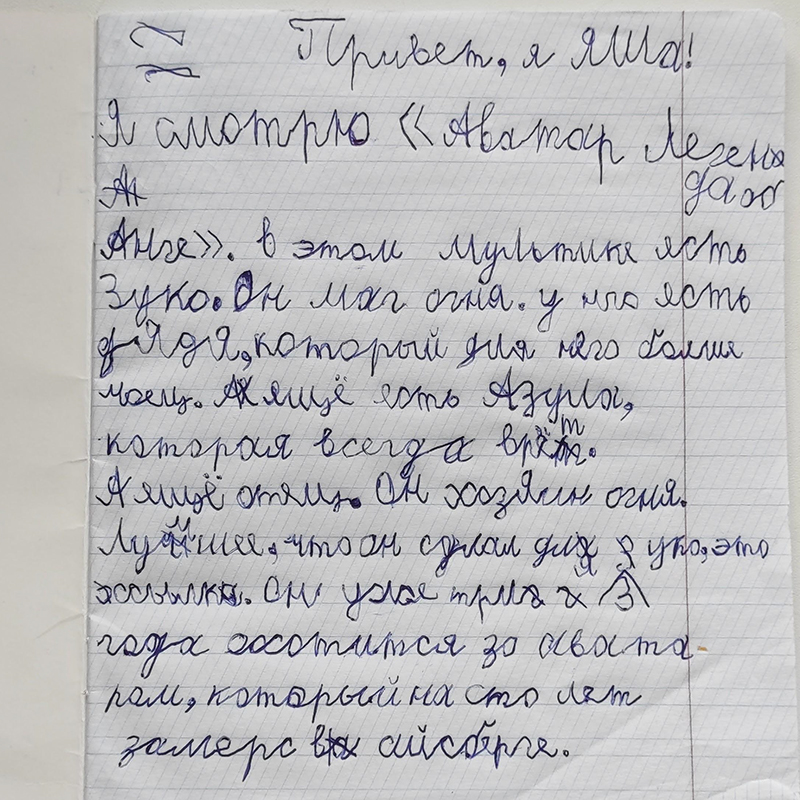 12 Привет, я ЯШа!
Я смотрю «Аватар Леген
да об
Анге». в этом мультике ясть
Зуко. Он маг огня. у нго ясть
дядя, который для няго болше
А ящё есть Азула,
которая всегда врёт.
А ящё отящ. Он хозяин огня.
Лучшее, что он сделал для Зуко, это
ссылка. Он уже три
года охотится за авата-
ром, который на сто лят
замерс в айсберге.